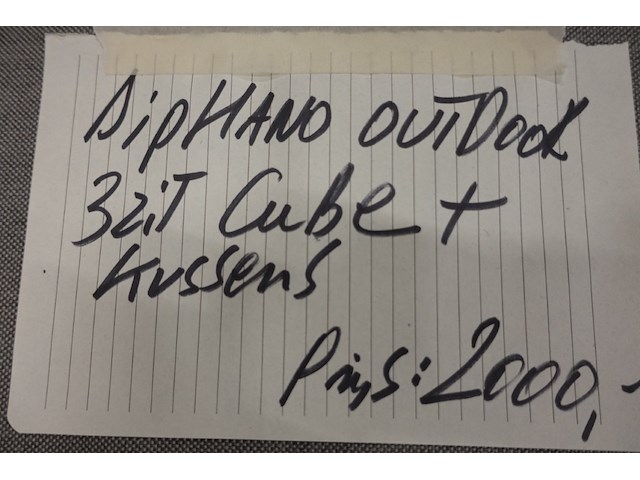 DipHANO OUTDooR
3ZiT CuBe +
Kussens
Prijs: 2000,-